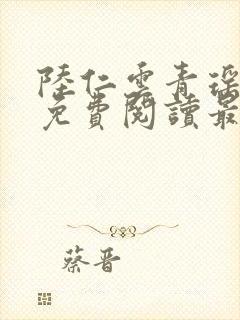 陸仁雲青瑶
免費閱讀最
蔡晋